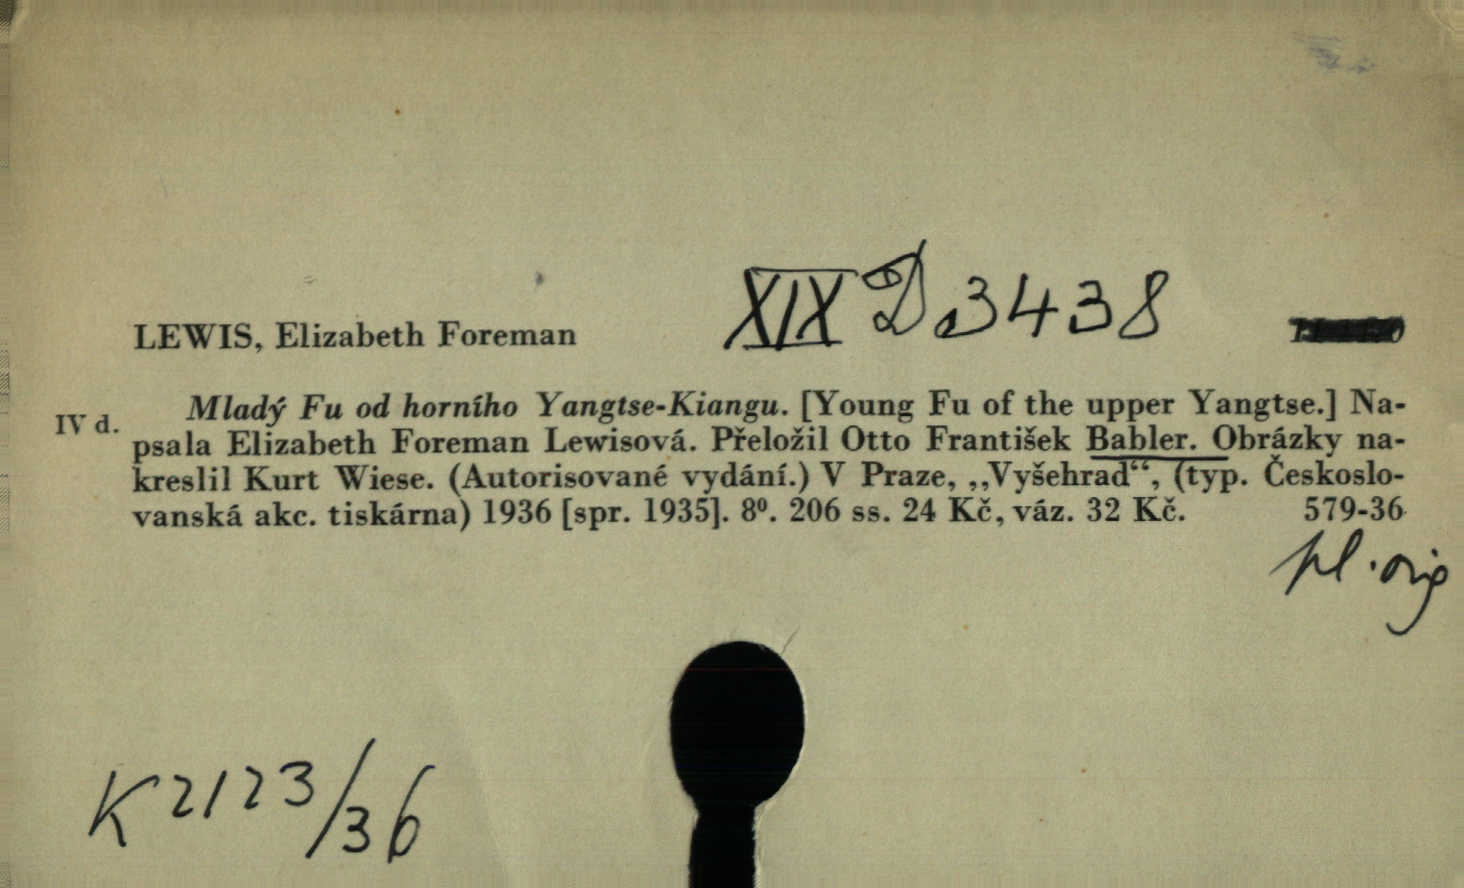 XIX D 3438
LEWIS, Elizabeth Foreman
Mladý Fu od horního Yangtse-Kiangu. [Young Fu of the upper Yangtse.] Na-
IV d.
psala Elizabeth Foreman Lewisová. Přeložil Otto František Babler. Obrázky na-
kreslil Kurt Wiese. (Autorisované vydání.) V Praze, ,,Vyšehrad“, (typ. Českoslo-
vanská akc. tiskárna) 1936 [spr. 1935]. 8⁰. 206 ss. 24 Kč, váz. 32 Kč. 579-36
pl. orig
K 2123/36